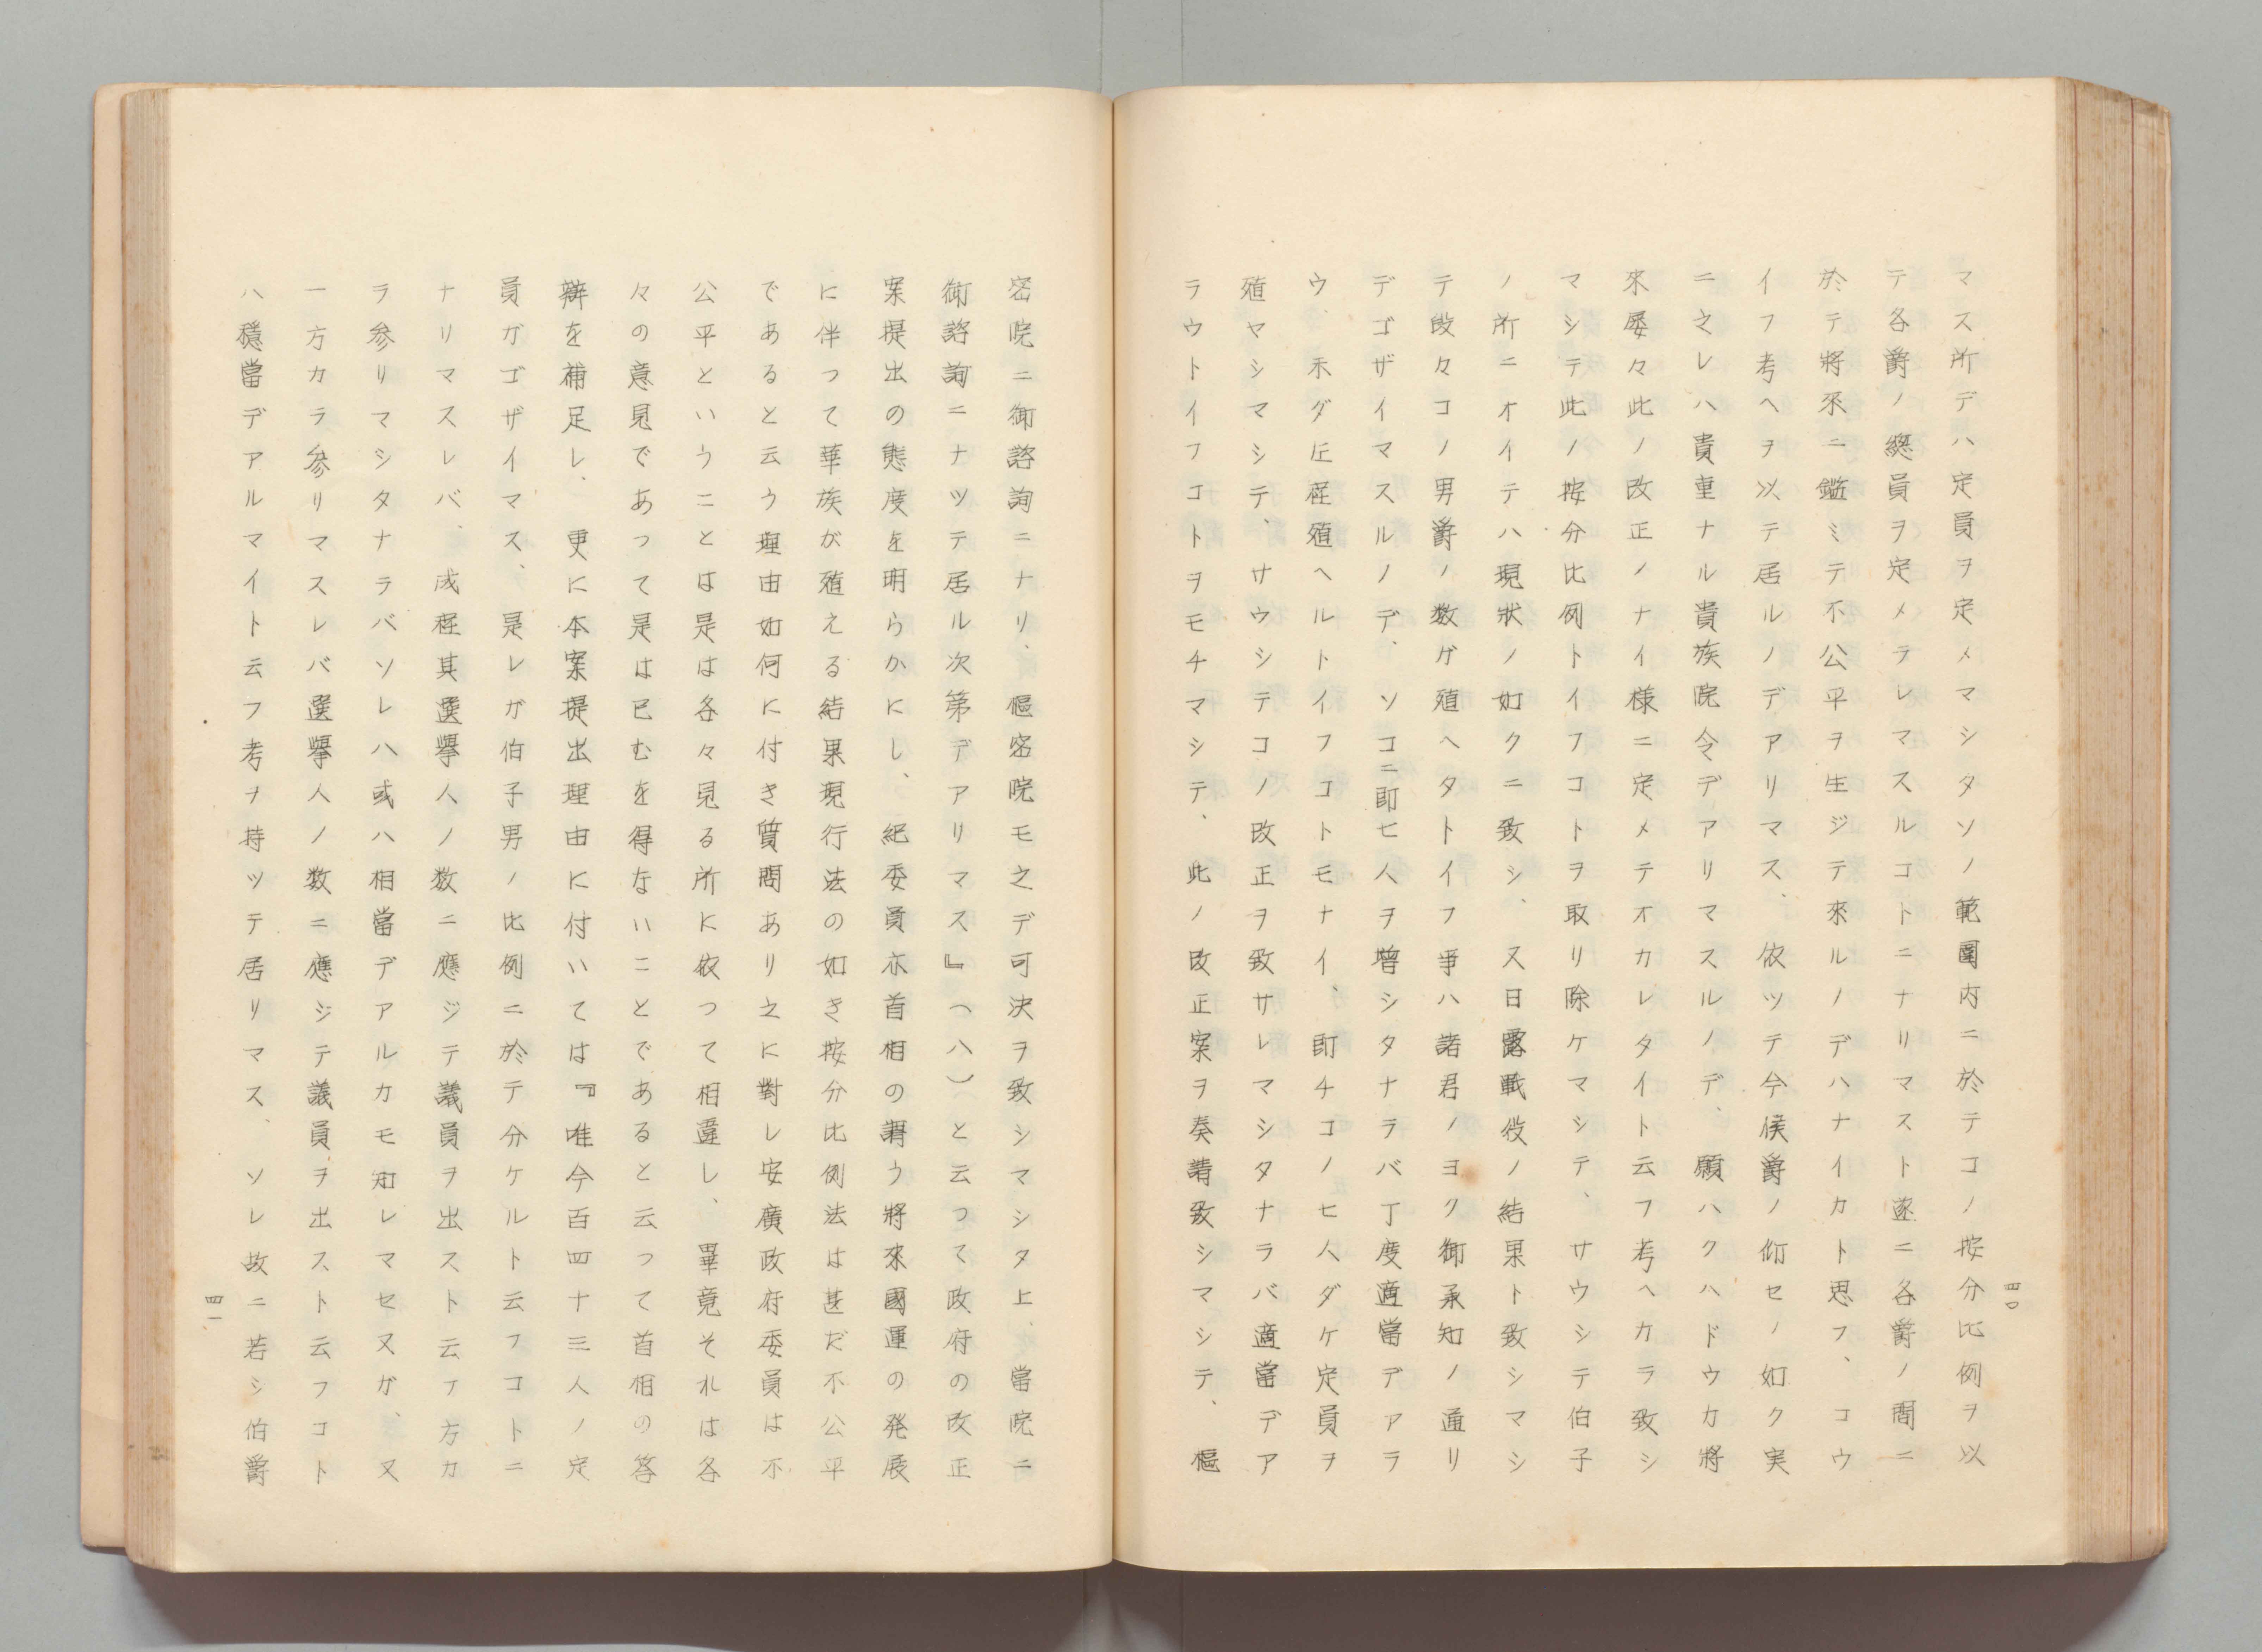 マス所デハ定員ヲ定メマシタソノ範圍内ニ於テコノ按分比例ヲ以
テ各爵ノ總員ヲ定メラレマスルコトニナリマスト遂ニ各爵ノ間ニ
於テ將來ニ鑑ミテ不公平ヲ生ジテ來ルノデハナイカト思フ、コウ
イフ考ヘヲ以テ居ルノデアリマス、依ツテ今侯爵ノ仰セノ如ク実
ニ之レハ貴重ナル貴族院令デアリマスルノデ、願ハクハドウカ將
來屡々此ノ改正ノナイ様ニ定メテオカレタイト云フ考ヘカラ致シ
マシテ此ノ按分比例トイフコトヲ取リ除ケマシテ、サウシテ伯子
ノ所ニオイテハ現狀ノ如クニ致シ、又日露戰役ノ結果ト致シマシ
テ段々コノ男爵ノ数ガ殖ヘタトイフ事ハ諸君ノヨク御承知ノ通リ
デゴザイマスルノデ、ソコニ即七人ヲ増シタナラバ丁度適當デアラ
ウ、未ダ此程殖ヘルトイフコトモナイ、即チコノ七人ダケ定員ヲ
殖ヤシマシテ、サウシテコノ改正ヲ致サレマシタナラバ適當デア
ラウトイフコトヲモチマシテ、此ノ改正案ヲ奏請致シマシテ、樞
四〇
密院ニ御諮詢ニナリ、樞密院モ之デ可決ヲ致シマシタ上、當院ニ
御諮詢ニナツテ居ル次第デアリマス』(八)と云つて政府の改正
案提出の態度を明らかにし、紀委員亦首相の謂う將來國運の発展
に伴つて華族が殖える結果現行法の如き按分比例法は甚だ不公平
であると云う理由如何に付き質問あり之に對し安廣政府委員は不
公平ということは是は各々見る所に依つて相違し、畢竟それは各
々の意見であつて是は已むを得ないことであると云つて首相の答
辯を補足し、更に本案提出理由に付いては『唯今百四十三人ノ定
員ガゴザイマス、是レガ伯子男ノ比例ニ於テ分ケルト云フコトニ
ナリマスレバ、成程其選擧人ノ数ニ應ジテ議員ヲ出スト云フ方カ
ラ参リマシタナラバソレハ或ハ相當デアルカモ知レマセヌガ、又
一方カラ参リマスレバ選擧人ノ数ニ應ジテ議員ヲ出スト云フコト
ハ穩當デアルマイト云フ考ヲ持ツテ居リマス、ソレ故ニ若シ伯爵
四一